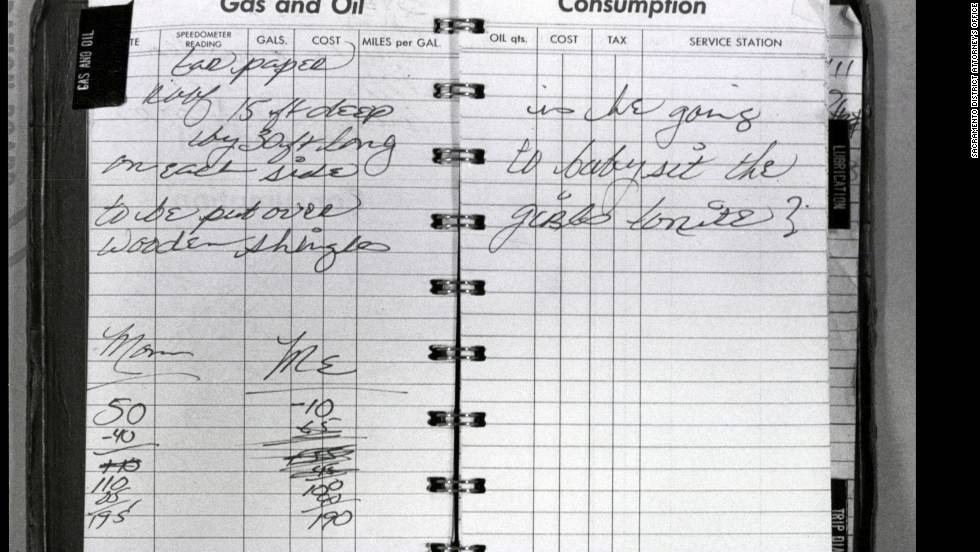 Gas and Oil
Consumption
GAS AND OIL
TE SPEEDOMETER READING GALS. COST MILES per GAL.
OIL qts. COST TAX SERVICE STATION
tar paper
roof 15 ft deep
by 30 ft long
on each side
to be put over
wooden shingles
Mom Me
50 -10
-40 65
110 100
195 190
is he going
to babysit the
girls tonite?
LUBRICATION
TRIP DIA
SACRAMENTO DISTRICT ATTORNEYS OFFICE